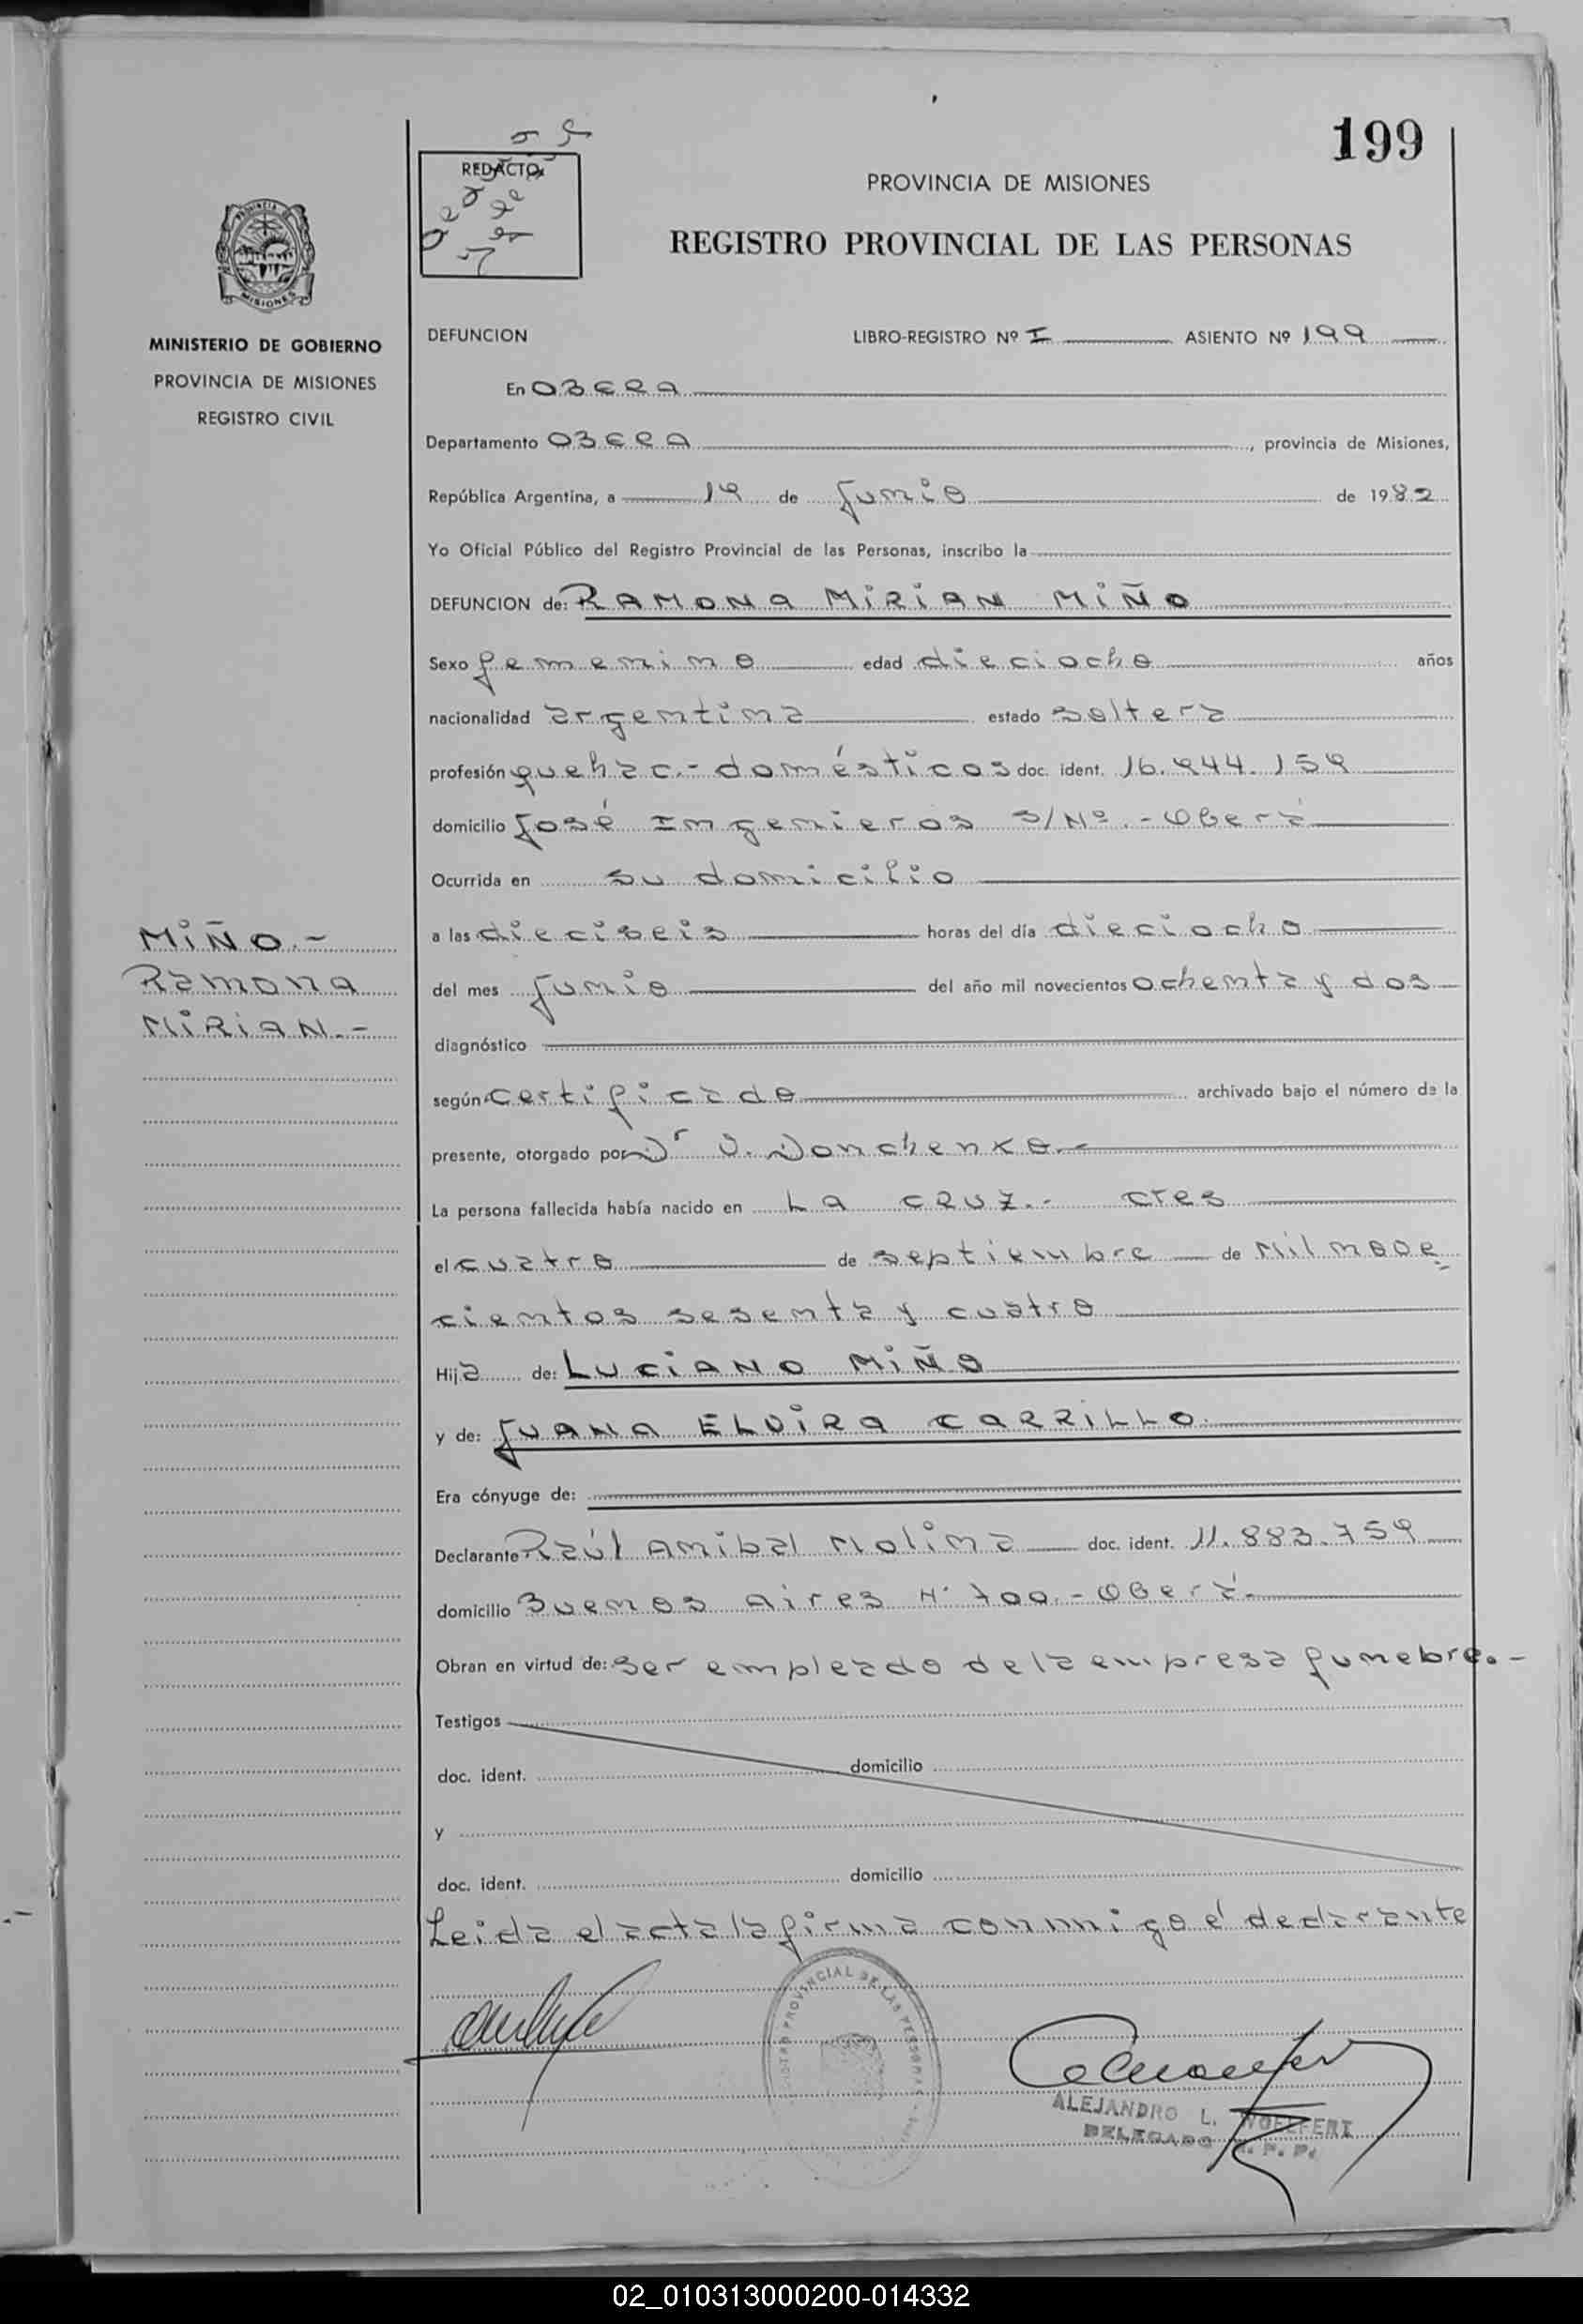 199
REDACTO:
PROVINCIA DE MISIONES
REGISTRO PROVINCIAL DE LAS PERSONAS
PROVINCIA DE
MISIONES
MINISTERIO DE GOBIERNO
PROVINCIA DE MISIONES
REGISTRO CIVIL
DEFUNCION LIBRO-REGISTRO Nº I ASIENTO Nº 199
En OBERA
Departamento OBERA, provincia de Misiones,
República Argentina, a 19 de Junio de 1982
Yo Oficial Público del Registro Provincial de las Personas, inscribo la
DEFUNCION de: RAMONA MIRIAN MIÑO
Sexo femenino edad dieciocho años
nacionalidad argentina estado soltera
profesión quehac.- domésticos doc. ident. 16.944.159
domicilio José Ingenieros S/Nº.- Oberá
Ocurrida en su domicilio
a las dieciseis horas del día dieciocho
del mes Junio del año mil novecientos ochenta y dos
MIÑO.-
Ramona
MIRIAN.-
diagnóstico
según certificado archivado bajo el número de la
presente, otorgado por Dr V. Donchenko.-
La persona fallecida había nacido en LA CRUZ.- Ctes
el cuatro de septiembre de Mil nove
cientos sesenta y cuatro
Hija de: LUCIANO MIÑO
y de: JUANA ELVIRA CARRILLO
Era cónyuge de:
Declarante Raúl Anibal Molina doc. ident. 11.883.759
domicilio Buenos Aires Nº 700.- Oberá.
Obran en virtud de: ser empleado de la empresa funebre.-
Testigos
doc. ident. domicilio
y
doc. ident. domicilio
Leida el acta la firma conmigo el declarante
PROVINCIAL DE LAS PERSONAS
ALEJANDRO L. WOELFERT
DELEGADO R. P. P.
02_010313000200-014332